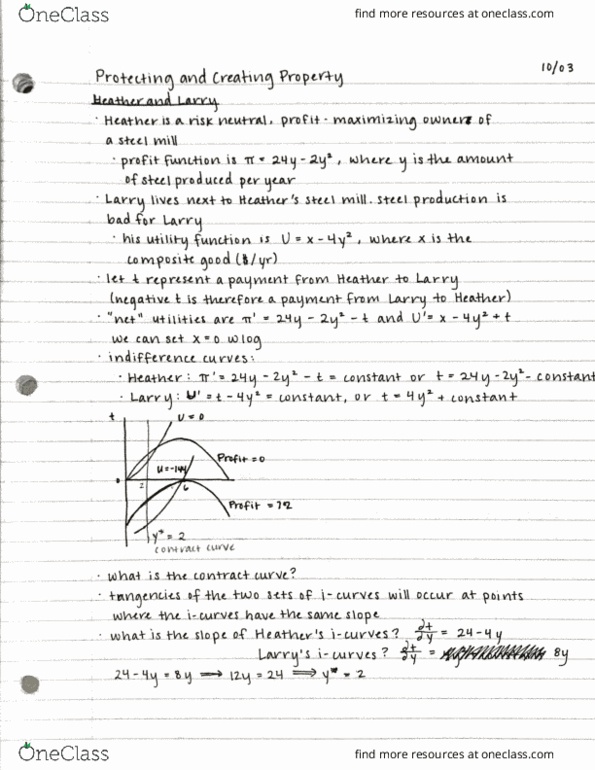 OneClass
find more resources at oneclass.com
10/03
Protecting and Creating Property
Heather and Larry
· Heather is a risk neutral, profit-maximizing owner of
a steel mill
· profit function is π = 24y - 2y², where y is the amount
of steel produced per year
· Larry lives next to Heather's steel mill. steel production is
bad for Larry
· his utility function is U = x - 4y², where x is the
composite good ($/yr)
· let t represent a payment from Heather to Larry
(negative t is therefore a payment from Larry to Heather)
· "net" utilities are π' = 24y - 2y² - t and U' = x - 4y² + t
we can set x = 0 wlog
· indifference curves:
· Heather: π' = 24y - 2y² - t = constant or t = 24y - 2y² - constant
· Larry: U' = t - 4y² = constant, or t = 4y² + constant
t
U = 0
Profit = 0
U = -144
0
2
6
Profit = 72
y* = 2
contract curve
· what is the contract curve?
· tangencies of the two sets of i-curves will occur at points
where the i-curves have the same slope
· what is the slope of Heather's i-curves? ∂t/∂y = 24 - 4y
Larry's i-curves? ∂t/∂y = 8y
24 - 4y = 8y ⟹ 12y = 24 ⟹ y* = 2
OneClass
find more resources at oneclass.com